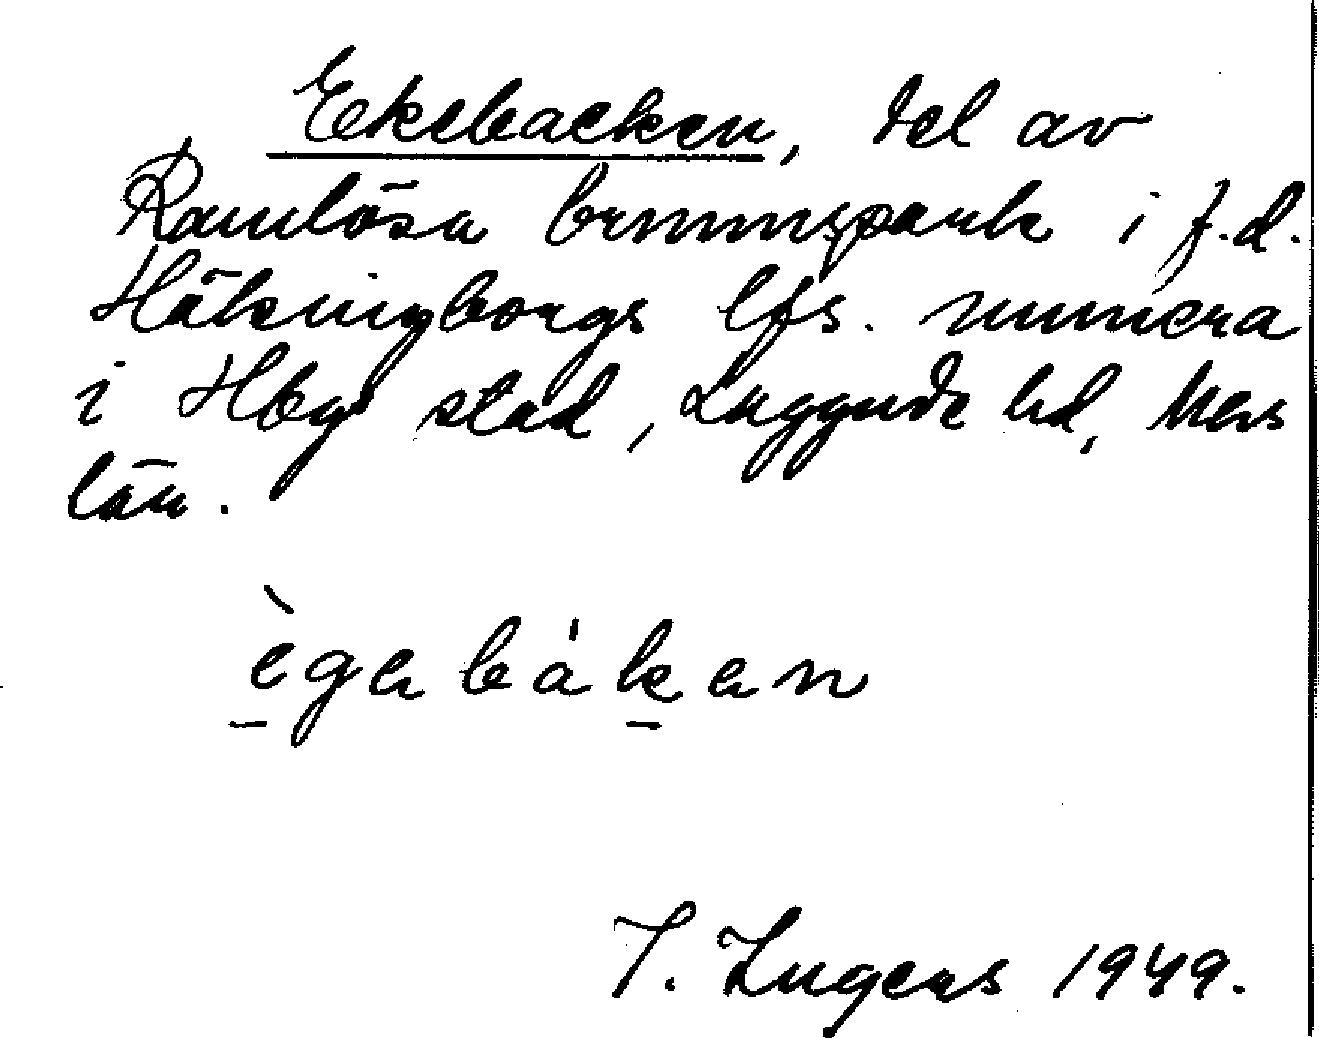 Ekebacken, del av
Ramlösa brunnspark i f.d.
Hälsingborgs lfs. numera
i Hbgs stad, Luggude hd, Mhs
län.
ègabákan
I. Ingers 1949.